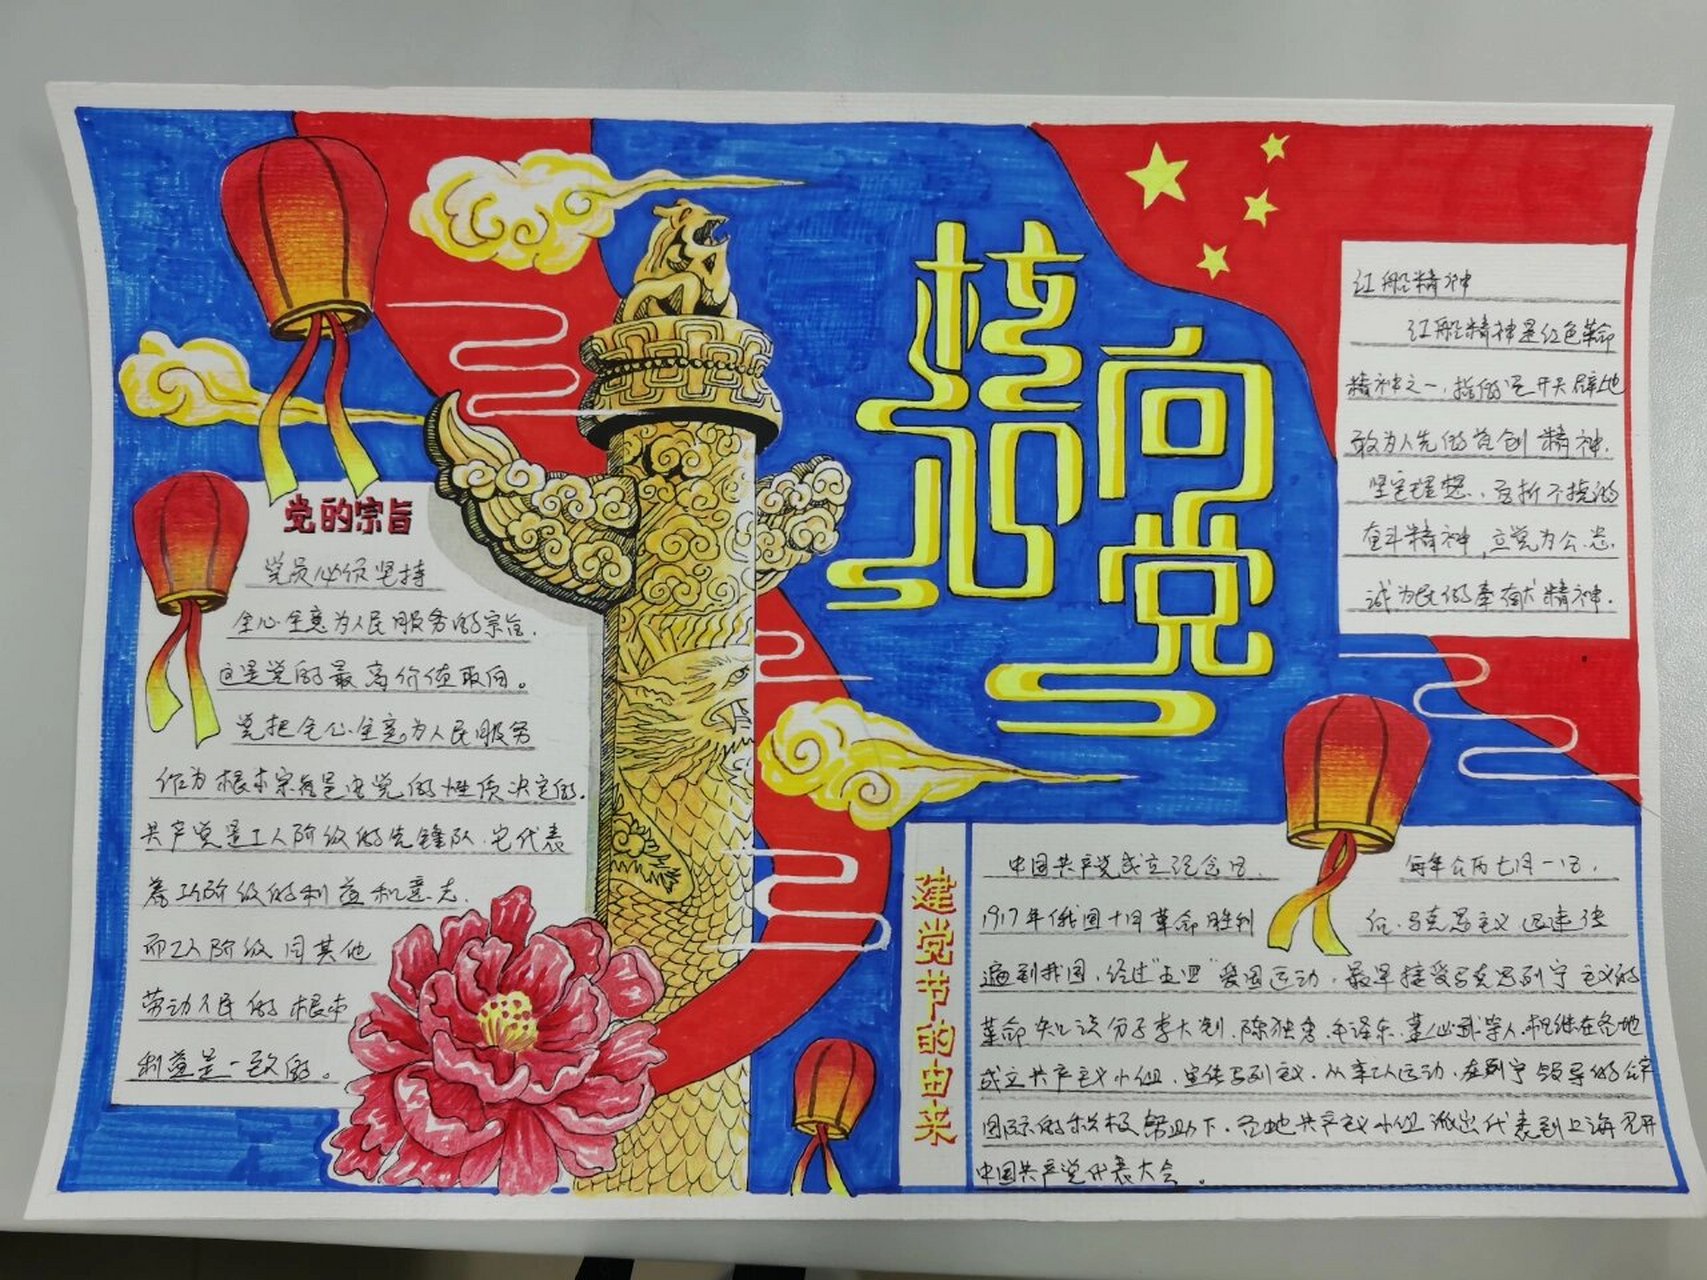 党的宗旨
党员必须坚持
全心全意为人民服务的宗旨.
这是党的最高价值取向。
党把全心全意为人民服务
作为根本宗旨是由党的性质决定的.
共产党是工人阶级的先锋队.它代表
着工人阶级的利益和意志.
而工人阶级同其他
劳动人民的根本
利益是一致的。
向党
红船精神
红船精神是红色革命
精神之一,指的是开天辟地
敢为人先的首创精神.
坚定理想、百折不挠的
奋斗精神,立党为公.忠
诚为民的奉献精神.
建党节的由来
中国共产党成立纪念日. 每年公历七月一日.
1917年俄国十月革命胜利 后.马克思主义迅速传
遍到我国,经过"五四"爱国运动,最早接受马克思列宁主义的
革命知识分子李大钊.陈独秀.毛泽东.董必武等人.相继在各地
成立共产主义小组.宣传马列主义.从事工人运动.在列宁领导的共产
国际的积极帮助下.各地共产主义小组派出代表到上海召开
中国共产党代表大会.